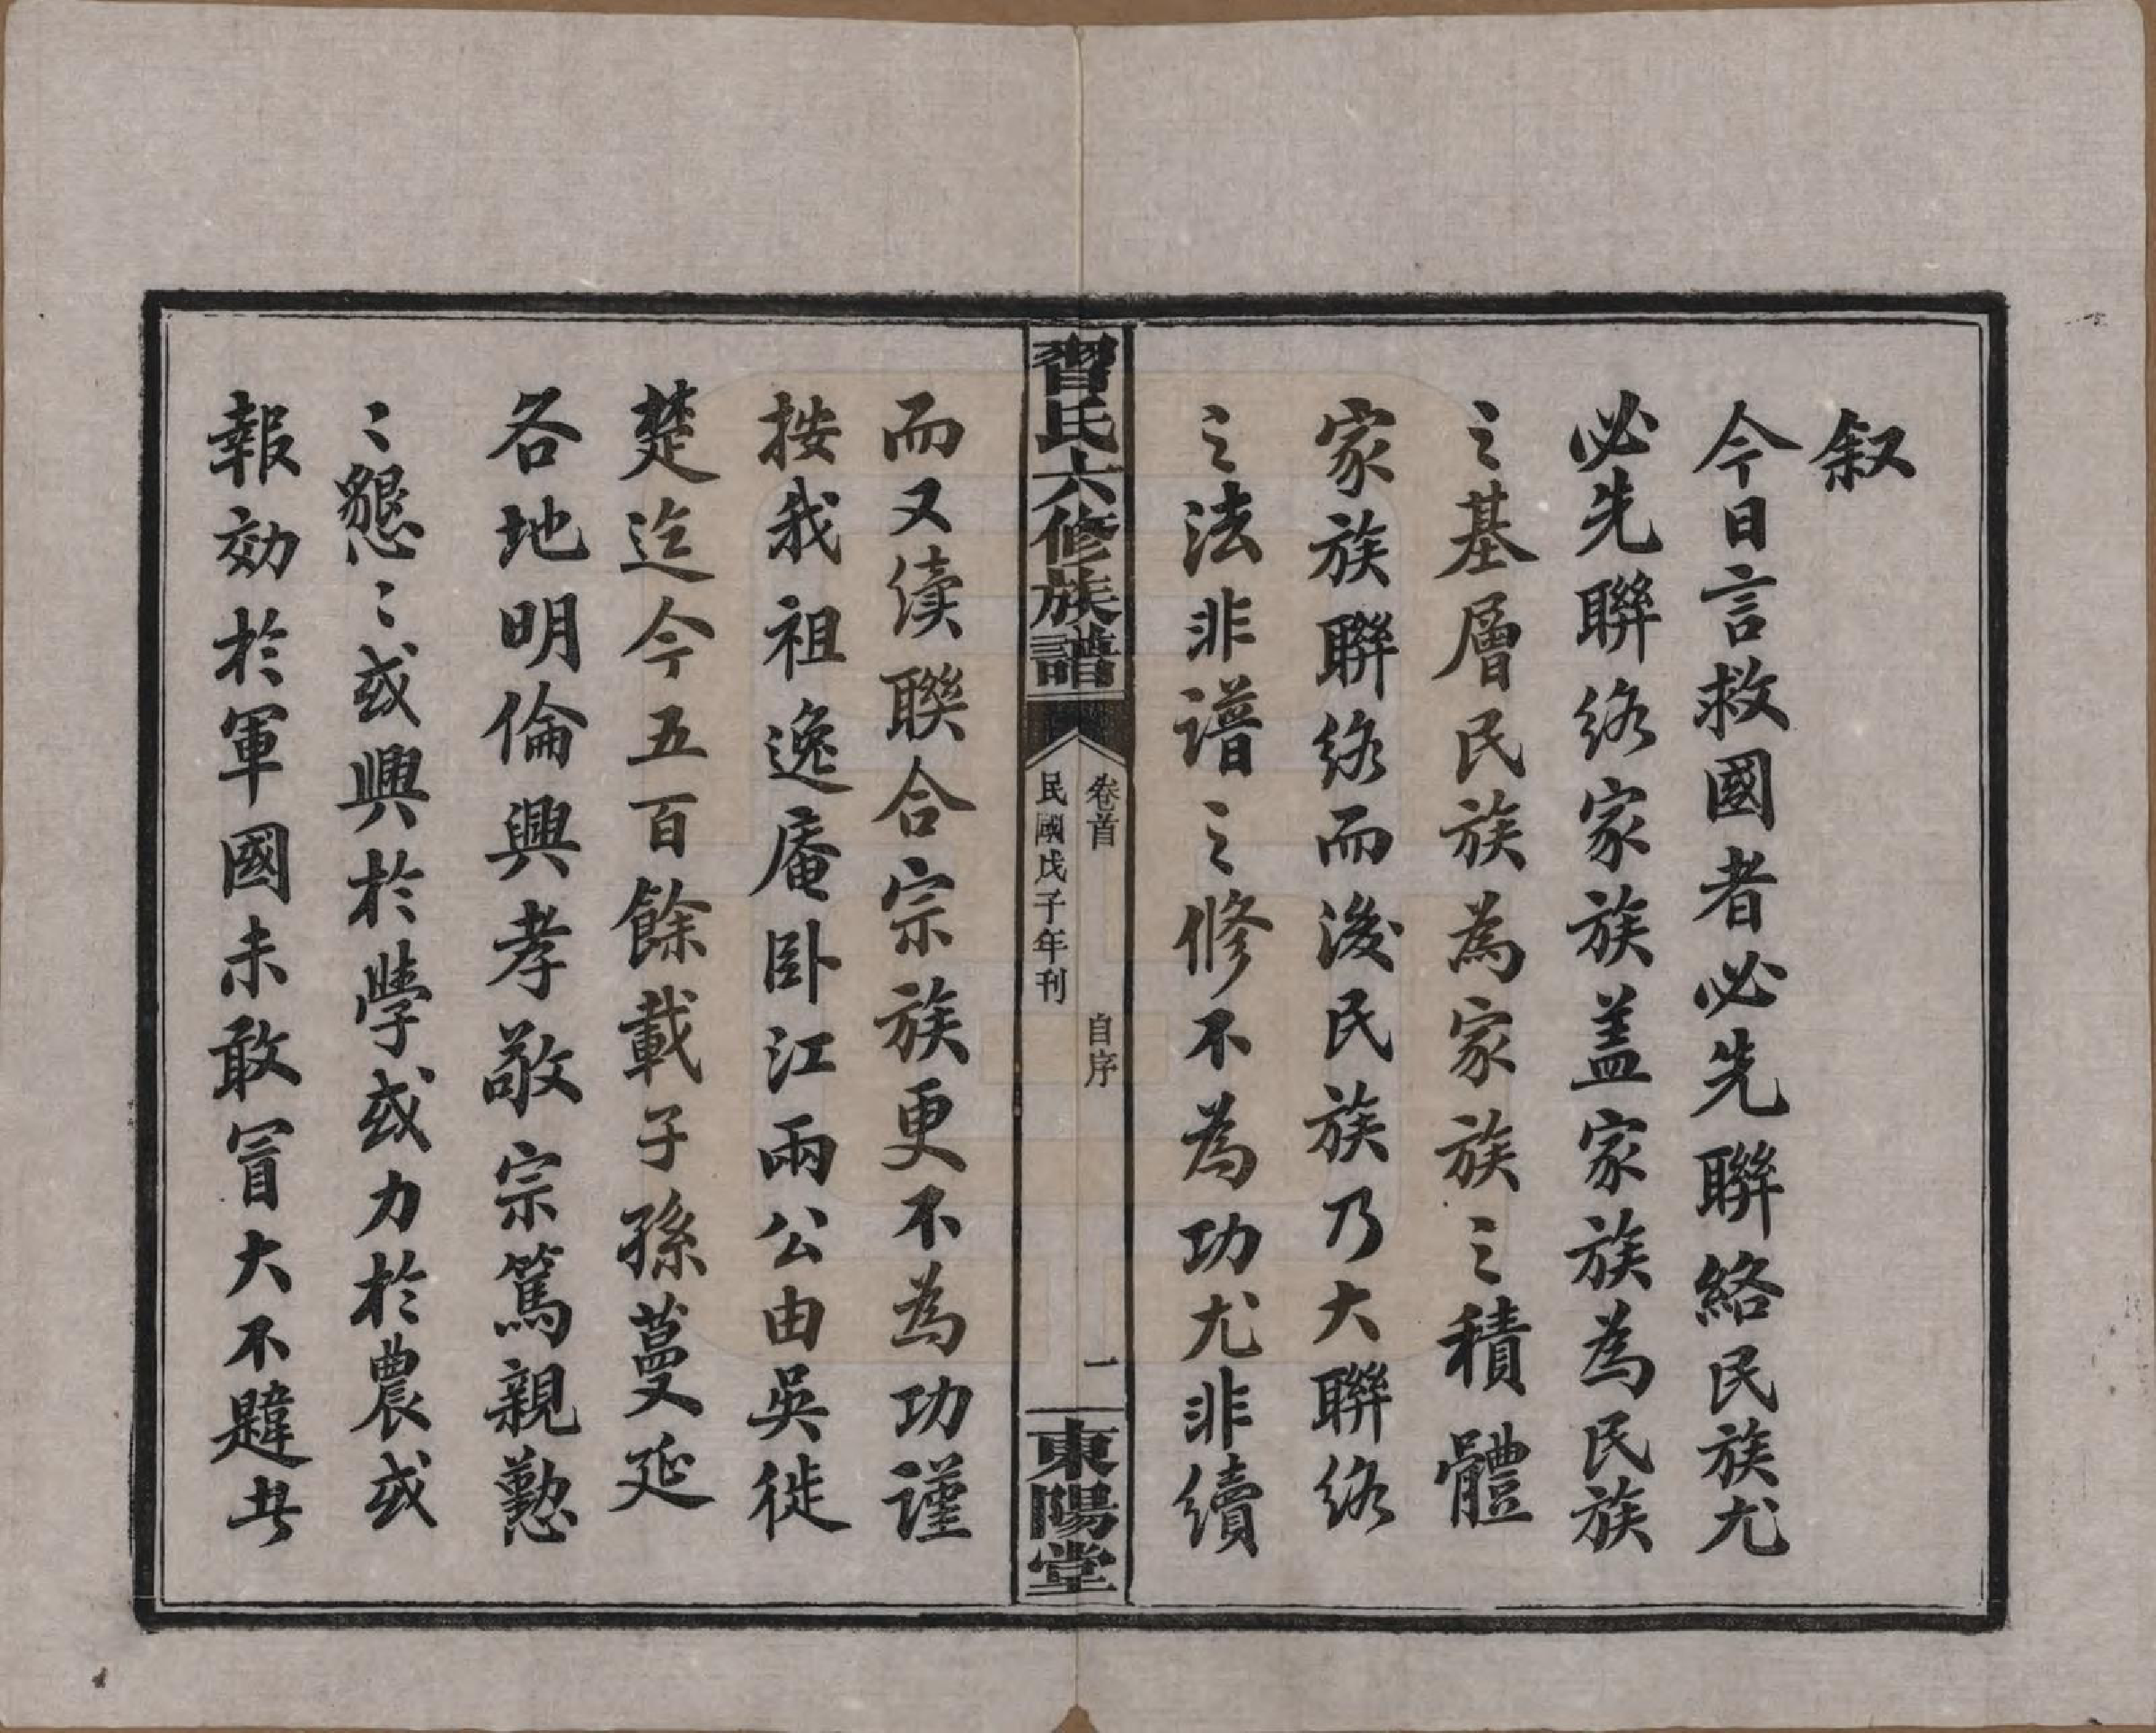 叙
今日言救國者必先聯絡民族尤
必先聯絡家族盖家族為民族
之基層民族為家族之積體
家族聯絡而後民族乃大聯絡
之法非譜之修不為功尤非續
習氏六修族譜
卷首
自序
一
民國戊子年刊
東陽堂
而又续聯合宗族更不為功謹
按我祖逸庵卧江兩公由吳徙
楚迄今五百餘載子孫蔓延
各地明倫興孝敬宗篤親懃
〻懇〻或興於學或力於農或
報効於軍國未敢冒大不韙此